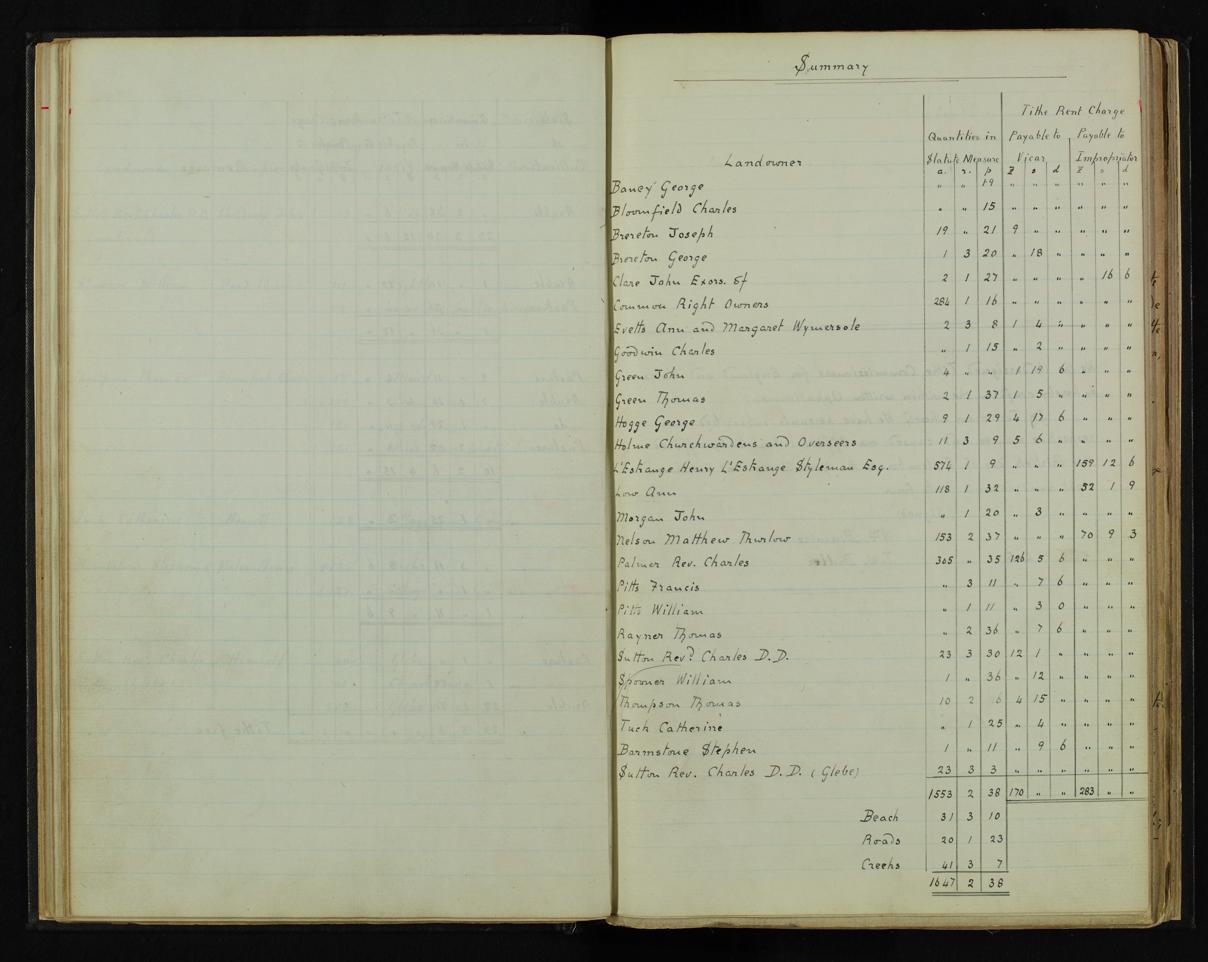 Summary
Tithe Rent Charge
Quantities in Payable to Payable to
Landowner Statute Measure Vicar Impropriator
a. r. p £ s d £ s d
Baney George " " 19 " " " " " "
Bloomfield Charles " " 15 " " " " " "
Brereton Joseph 19 " 21 9 " " " " "
Brereton George 1 3 20 " 18 " " " "
Clare John Exors. of 2 1 27 " " " " 16 6
Common Right Owners 284 1 16 " " " " " "
Evetts Ann and Margaret Wymersole 2 3 8 1 4 " " " "
Goodwin Charles " 1 15 " 2 " " " "
Green John 4 " " 1 19 6 " " "
Green Thomas 2 1 37 1 5 " " " "
Hogge George 9 1 29 4 17 6 " " "
Holme Churchwardens and Overseers 11 3 9 5 6 " " " "
L'Estrange Henry L'Estrange Styleman Esq. 574 1 9 " " " 159 12 6
Low Ann 118 1 32 " " " 52 1 9
Morgan John " 1 20 " 3 " " " "
Nelson Matthew Thurlow 153 2 37 " " " 70 9 3
Palmer Rev. Charles 305 " 35 126 5 6 " " "
Pitts Francis " 3 11 " 7 6 " " "
Pitts William " 1 11 " 3 0 " " "
Rayner Thomas " 2 36 " 7 6 " " "
Sutton Revd. Charles D.D. 23 3 30 12 1 " " " "
Spooner William 1 " 36 " 12 " " " "
Thompson Thomas 10 2 6 4 15 " " " "
Tuck Catherine " 1 25 " 4 " " " "
Barmstone Stephen 1 " 11 " 9 6 " " "
Sutton Rev. Charles D.D. (Glebe) 23 3 3 " " " " " "
1553 2 38 170 " " 283 " "
Beach 31 3 10
Roads 20 1 23
Creeks 41 3 7
1647 2 38